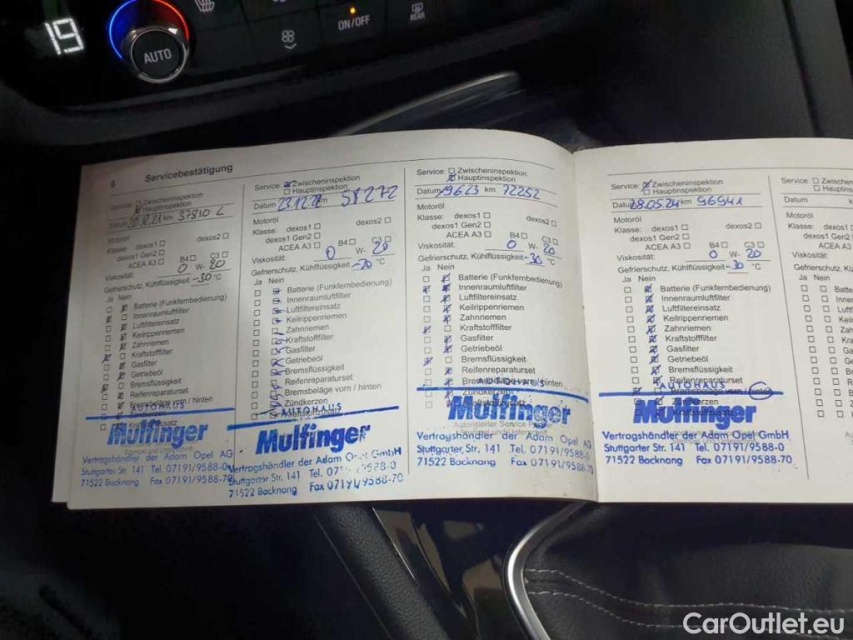 19
AUTO
ON/OFF
REAR
6
Servicebestätigung
Service: Zwischeninspektion
Hauptinspektion
km 37810
Motoröl
Klasse: dexos1 dexos2
dexos1 Gen2
ACEA A3 B4 C3
Viskosität: 0 W- 20
Gefrierschutz, Kühlflüssigkeit -30 °C
Ja Nein
Batterie (Funkfernbedienung)
Innenraumluftfilter
Luftfiltereinsatz
Keilrippenriemen
Zahnriemen
Kraftstofffilter
Gasfilter
Getriebeöl
Bremsflüssigkeit
Reifenreparaturset
Bremsbeläge vorn / hinten
AUTOHAUS
Mulfinger
Vertragshändler der Adam Opel AG
Stuttgarter Str. 141 Tel. 07191/9588-0
71522 Backnang Fax 07191/9588-70
Service: Zwischeninspektion
Hauptinspektion
Datum 23.12. km 58272
Motoröl
Klasse: dexos1 dexos2
dexos1 Gen2
ACEA A3 B4 C3
Viskosität: 0 W- 20
Gefrierschutz, Kühlflüssigkeit -30 °C
Ja Nein
Batterie (Funkfernbedienung)
Innenraumluftfilter
Luftfiltereinsatz
Keilrippenriemen
Zahnriemen
Kraftstofffilter
Gasfilter
Getriebeöl
Bremsflüssigkeit
Reifenreparaturset
Bremsbeläge vorn / hinten
Zündkerzen
AUTOHAUS
Mulfinger
Vertragshändler der Adam Opel AG
Stuttgarter Str. 141 Tel. 07191/9588-0
71522 Backnang Fax 07191/9588-70
Service: Zwischeninspektion
Hauptinspektion
Datum 19623 km 72252
Motoröl
Klasse: dexos1 dexos2
dexos1 Gen2
ACEA A3 B4 C3
Viskosität: 0 W- 20
Gefrierschutz, Kühlflüssigkeit -30 °C
Ja Nein
Batterie (Funkfernbedienung)
Innenraumluftfilter
Luftfiltereinsatz
Keilrippenriemen
Zahnriemen
Kraftstofffilter
Gasfilter
Getriebeöl
Bremsflüssigkeit
Reifenreparaturset
Bremsbeläge vorn / hinten
Zündkerzen
AUTOHAUS
Mulfinger
Vertragshändler der Adam Opel AG
Stuttgarter Str. 141 Tel. 07191/9588-0
71522 Backnang Fax 07191/9588-70
Service: Zwischeninspektion
Hauptinspektion
Datum 28.05.24 km 96941
Motoröl
Klasse: dexos1 dexos2
dexos1 Gen2
ACEA A3 B4 C3
Viskosität: 0 W- 20
Gefrierschutz, Kühlflüssigkeit -30 °C
Ja Nein
Batterie (Funkfernbedienung)
Innenraumluftfilter
Luftfiltereinsatz
Keilrippenriemen
Zahnriemen
Kraftstofffilter
Gasfilter
Getriebeöl
Bremsflüssigkeit
Reifenreparaturset
AUTOHAUS
Mulfinger
Vertragshändler der Adam Opel GmbH
Stuttgarter Str. 141 Tel. 07191/9588-0
71522 Backnang Fax 07191/9588-70
Service: Zwischen
Hauptins
Datum
Motoröl
Klasse: dexos1
dexos1 Gen2
ACEA A3
Viskosität:
Gefrierschutz, Kü
Ja Nein
CarOutlet.eu